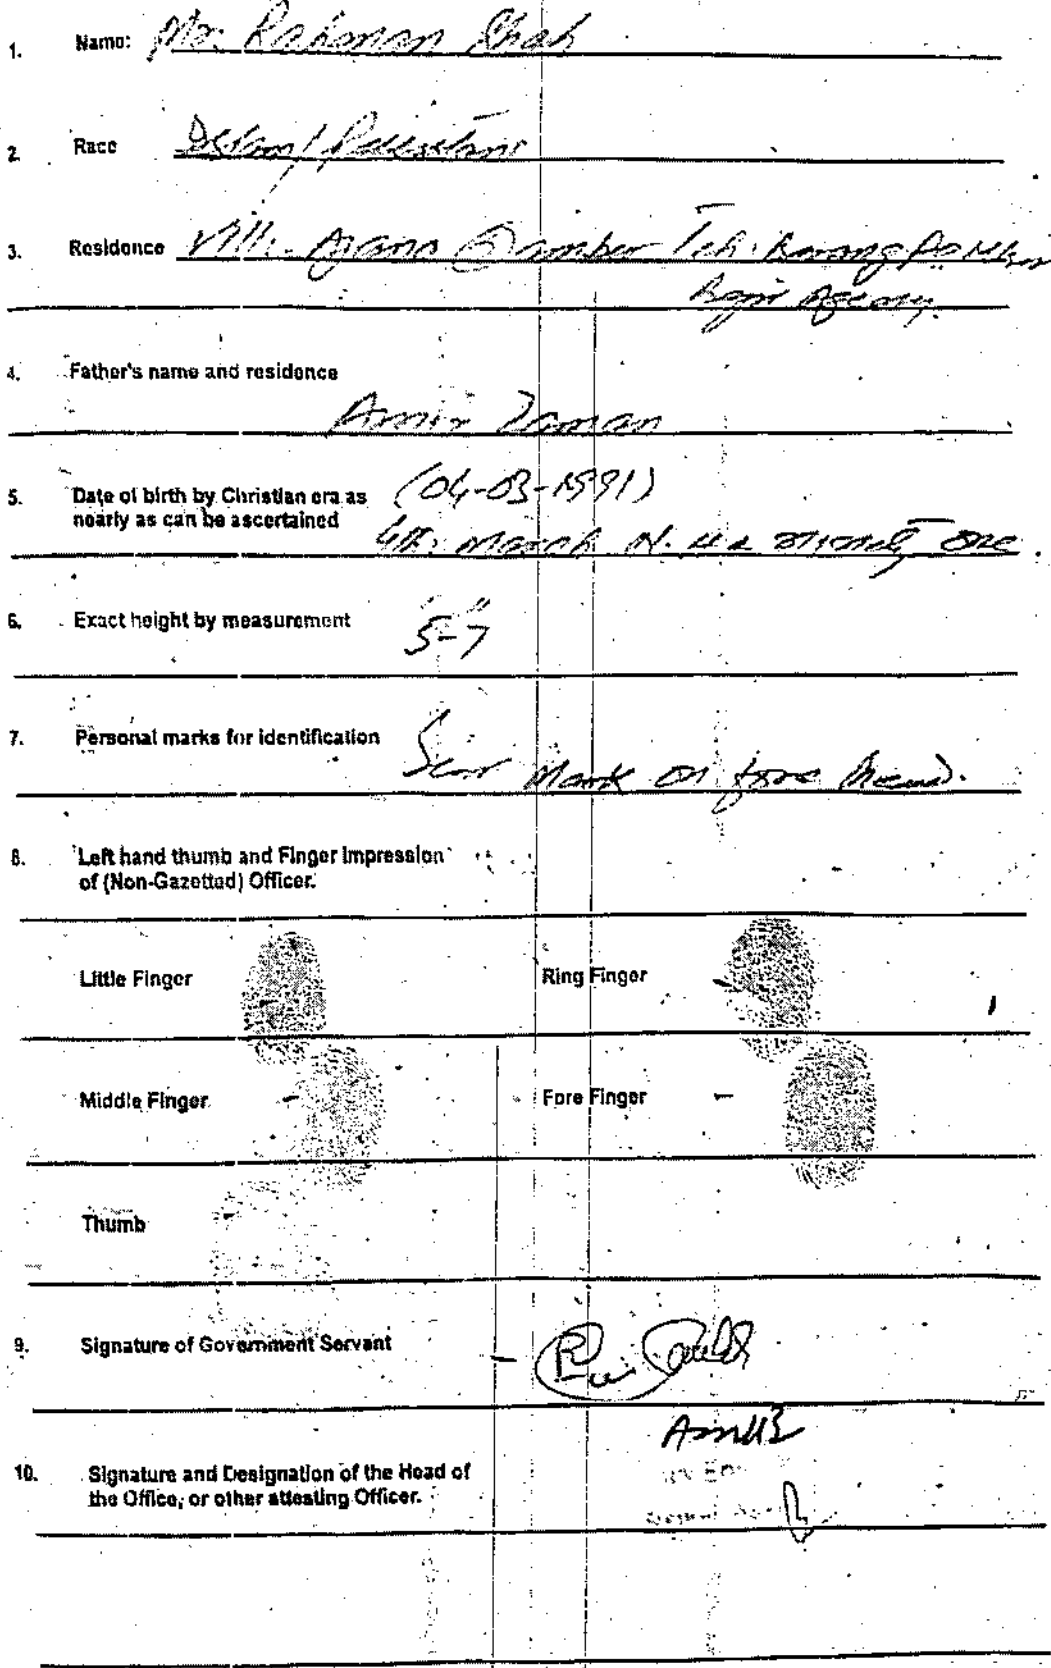 1. Name: Mr. Rahman Shah
2. Race Islam / Pakistani
3. Residence Vill:- Qamber Teh:
Agency.
4. Father's name and residence
Amir Zaman
5. Date of birth by Christian era as (04-03-1991)
nearly as can be ascertained
4th: March N. One.
6. Exact height by measurement 5'-7"
7. Personal marks for identification
Scar Mark on fore head.
8. Left hand thumb and Finger Impression
of (Non-Gazetted) Officer.
Little Finger Ring Finger
Middle Finger Fore Finger
Thumb
9. Signature of Government Servant
10. Signature and Designation of the Head of
the Office, or other attesting Officer.